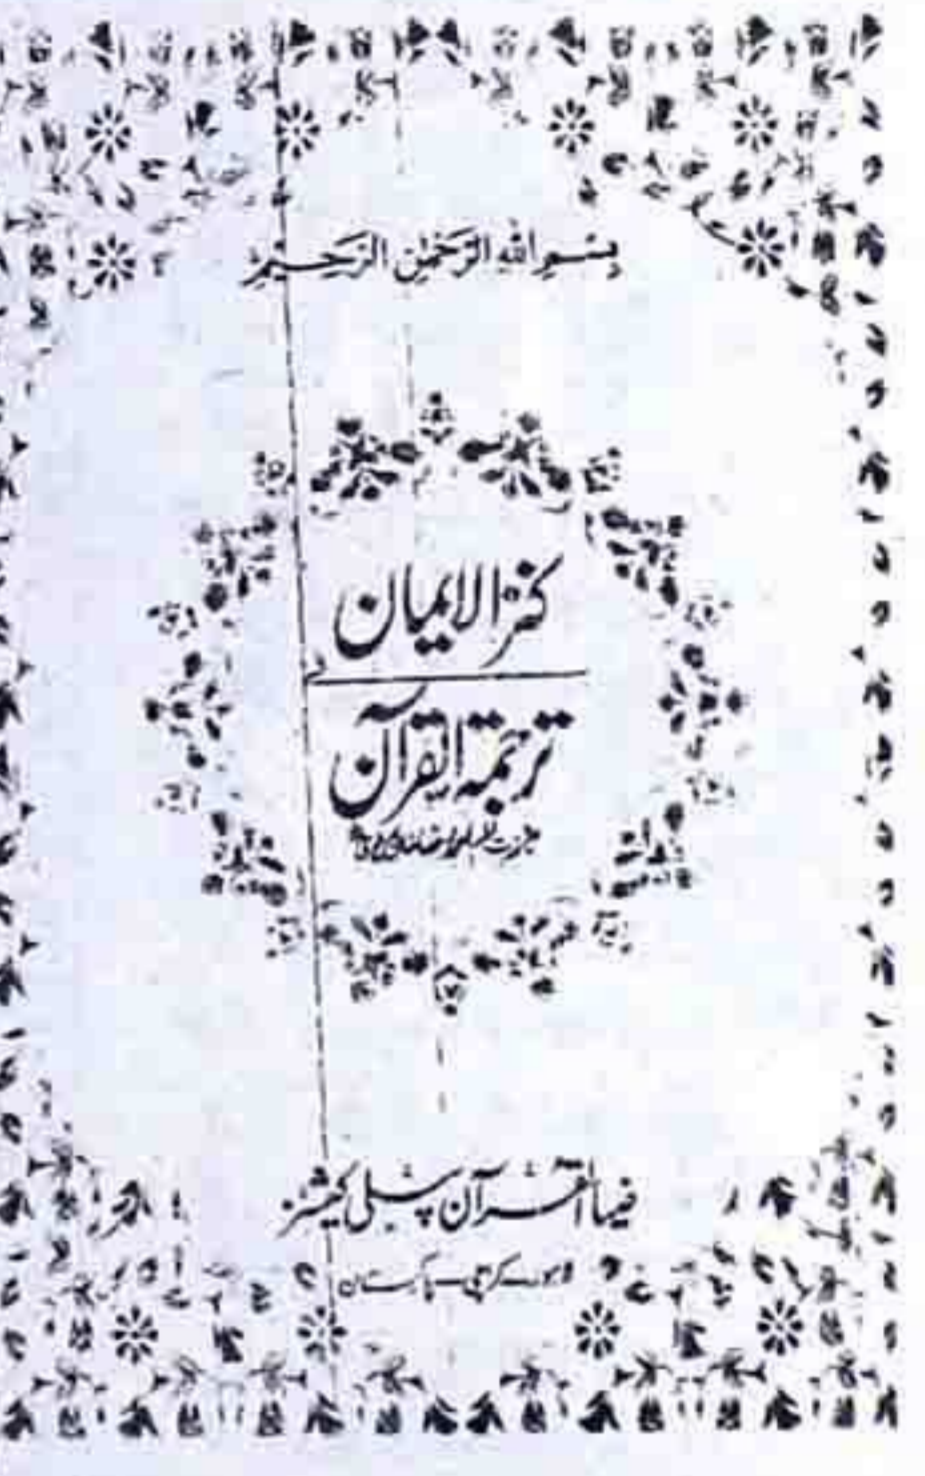 بِسْمِ اللهِ الرَّحْمٰنِ الرَّحِيْمِ
کنز الایمان
فی
ترجمۃ القرآن
ضیاء القرآن پبلی کیشنز
لاہور ـ کراچی ـ پاکستان